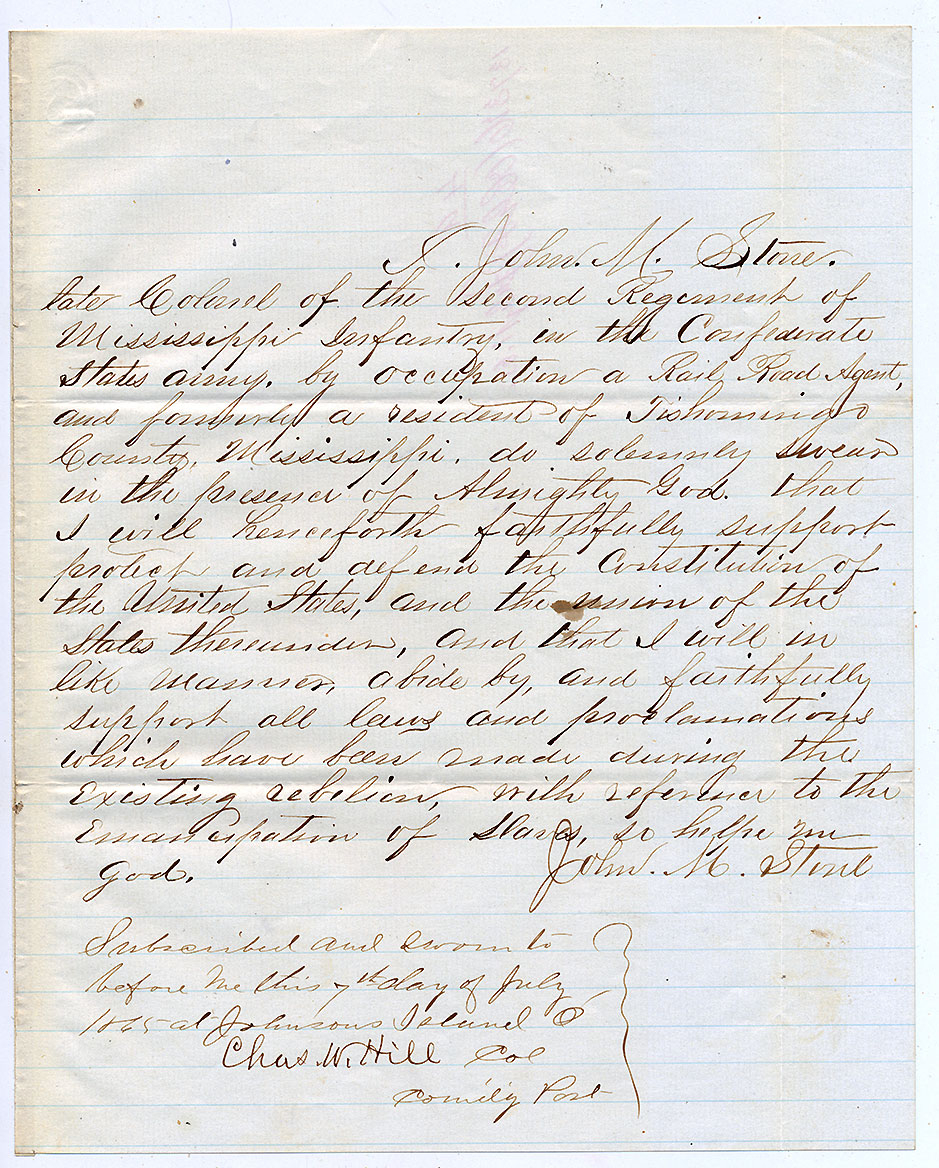 I. John. M. Stone.
late Colonel of the second Regement of
Mississippi Infantry, in the Confederate
States army. by occupation a Rail Road Agent,
and formerly a resident of Tishomingo
County, Mississippi. do solemnly swear
in the presence of Almighty God. that
I will henceforth faithfully support
protect and defend the Constitution of
the United States, and the union of the
States thereunder, and that I will in
like manner, abide by, and faithfully
support all laws and proclamations
which have been made during the
existing rebelion, with reference to the
Emancipation of slaves, so helpe me
God.
John. M. Stone
Subscribed and sworn to
before me this 7th day of July
1865 at Johnsons Island O
Chas. W. Hill Col
Comd'g Post